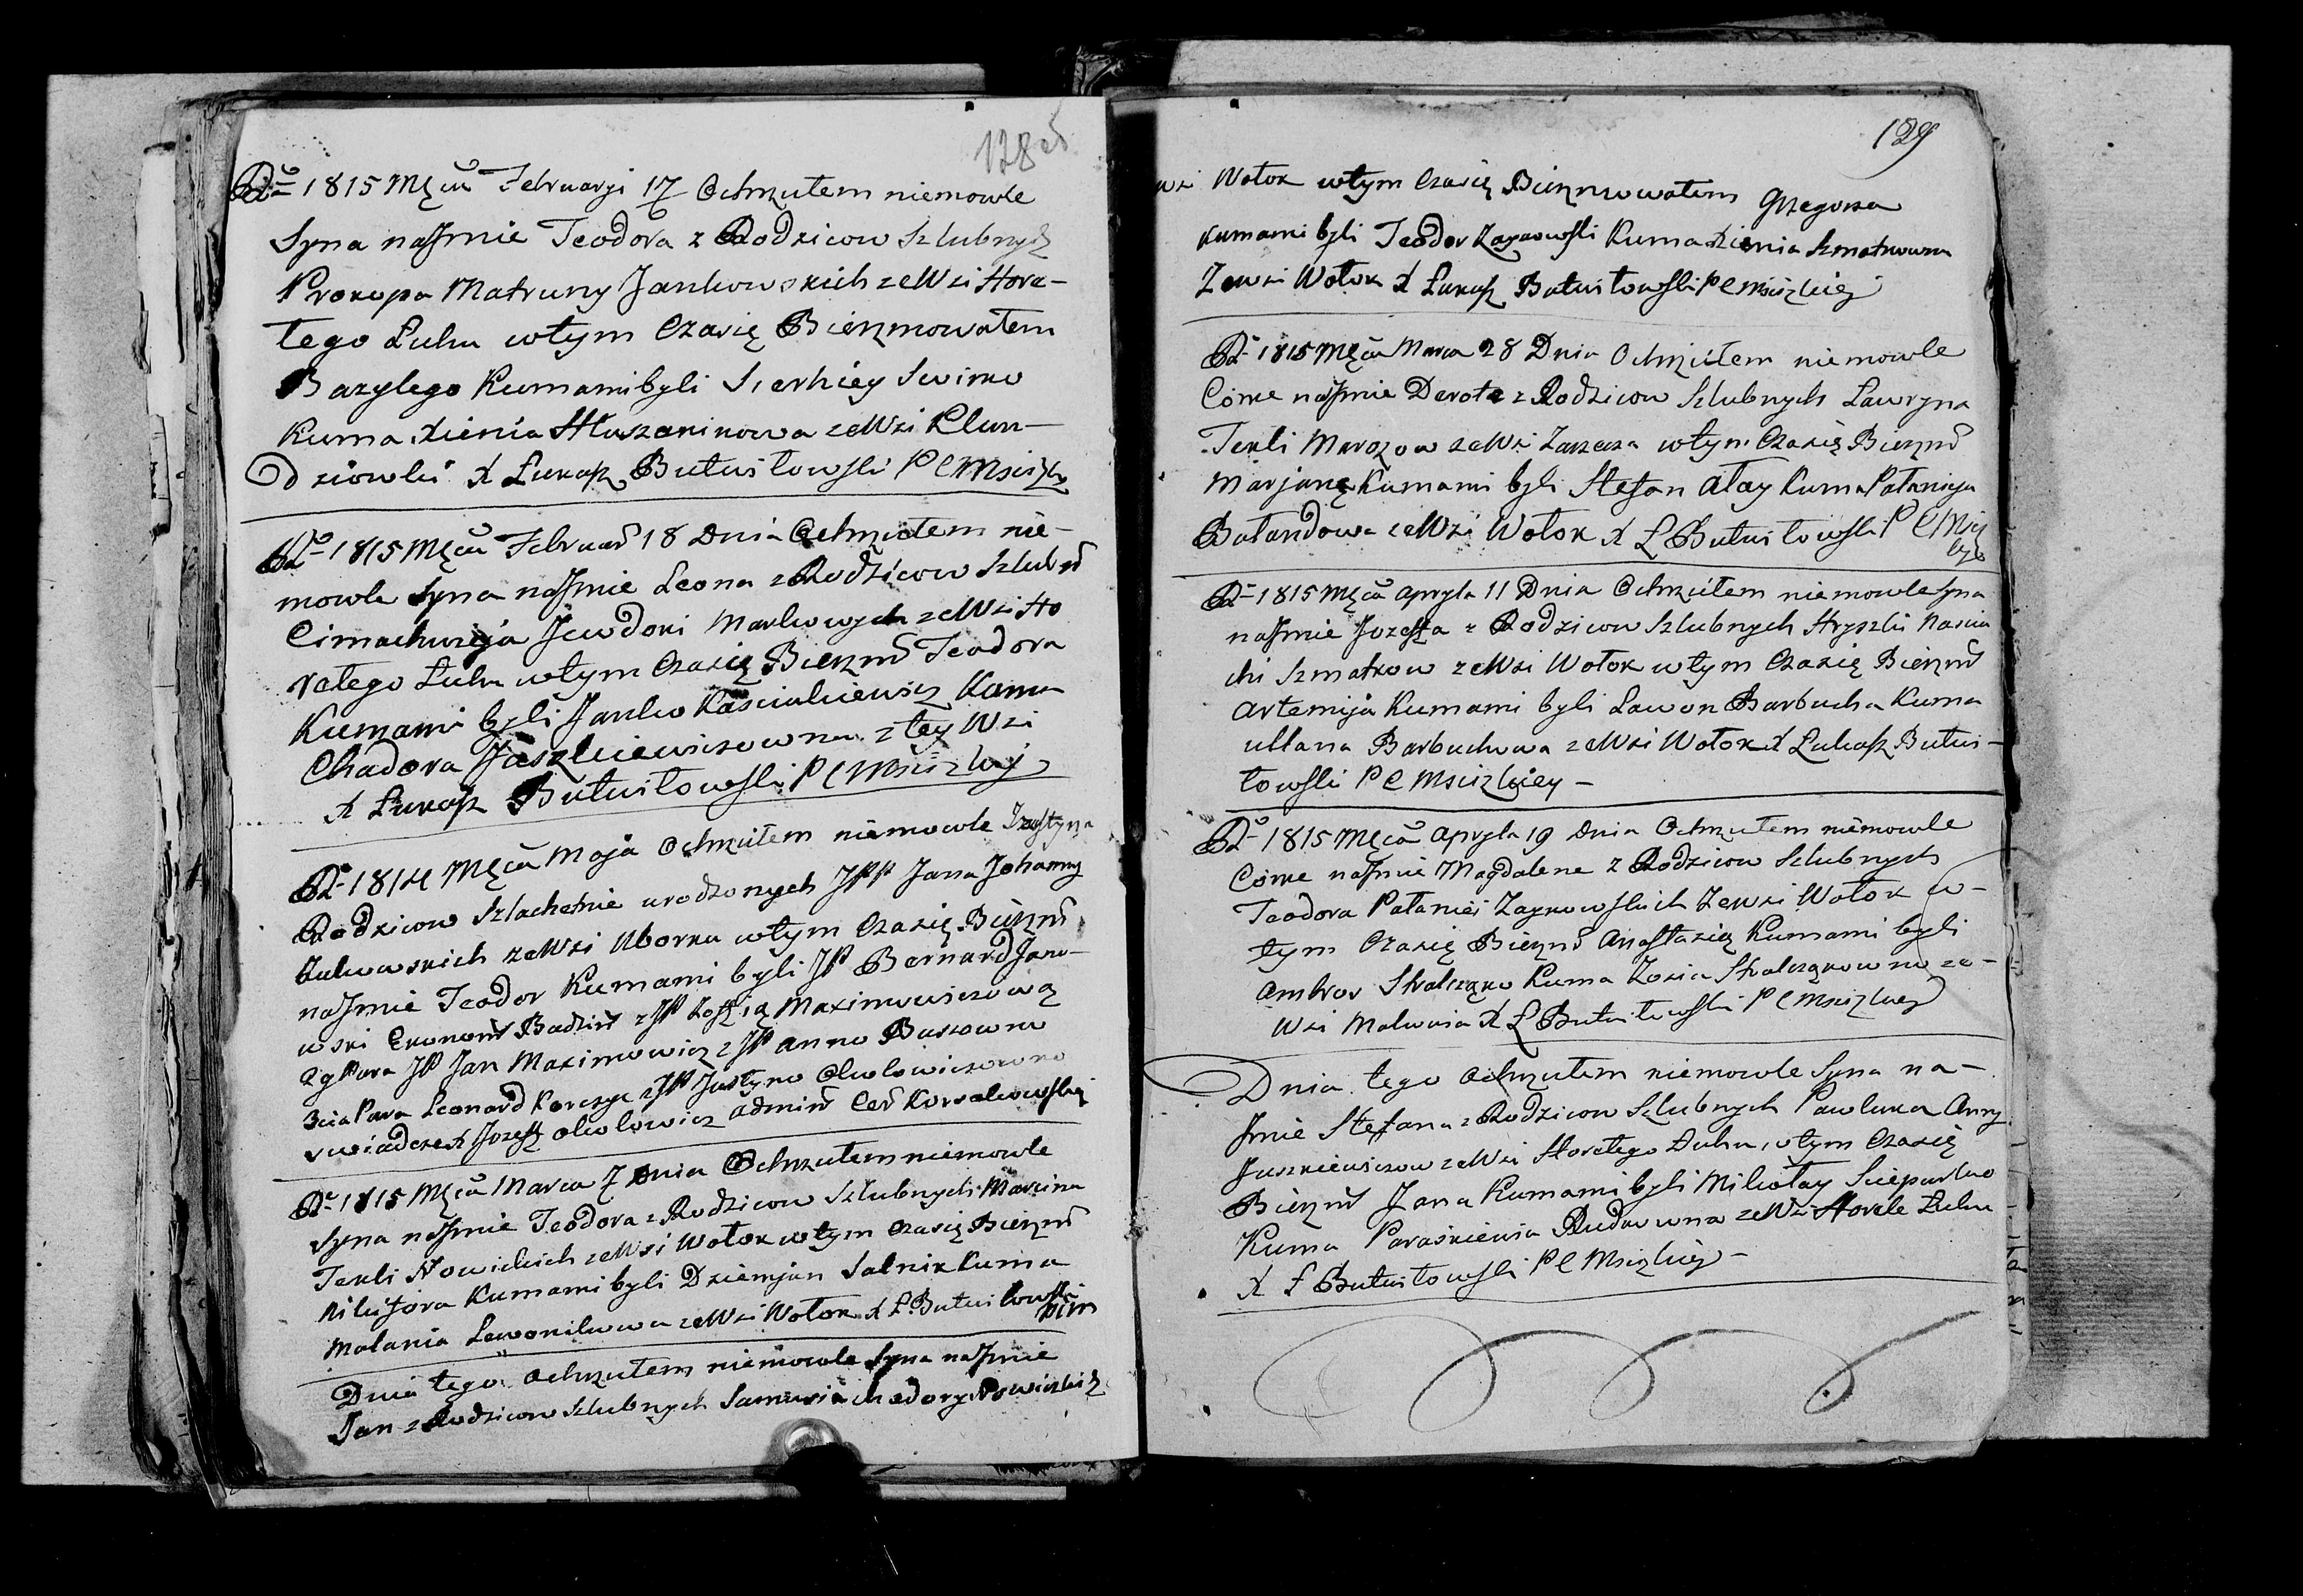 128 об
Rº 1815 Mᶜą Februaryi 17 Ochrzciłem niemowle
Syna na Jmie Teodora z Rodzicow Szlubnych
Prokopa Matruny Jankowskich ze Wsi Hore-
łego Luhu w tym Czasię Bierzmowałem
Bazylego Kumami byli Sierhiey Swirko
Kuma Xienia Hłuszaninowa ze Wsi Klun-
Dziowki X Łukasz Butwiłowski P C Msciż
Rº 1815 Mᶜą Februar 18 Dnia Ochrzciłem nie-
mowle Syna na Jmie Leona z Rodzicow Szlub
Cimachwieja Jewdoki Markowych ze Wsi Ho
rełego Łuhu w tym Czasię Bierzm Teodora
Kumami byli Janko Kasciukiewicz Kuma
Chadora Juszkiewiczowna z tey Wsi
X Łukasz Butwiłowski P C Msciżkiej
Rº 1814 Mᶜą Maja Ochrzciłem niemowle Justyna
Rodzicow Szlachetnie urodzonych JPP Jana Johanny
ze Wsi Uborku w tym Czasię Bierzm
na Jmie Teodor Kumami byli JP Bernard Jano-
wski Ekonom z JP Zofią Maximowiczową
2g Para JP Jan Maximowicz z JP Anno
3cia Para Leonard Korczyc z JP Justyno Olwłowiczowno
swiadcze X Jozef Olwłowicz Admin Cer
Rº 1815 Mᶜą Marca 7 Dnia Ochrzciłem niemowle
Syna na Jmie Teodora z Rodzicow Szlubnych Marcina
Tekli Nowickich ze Wsi Wołok w tym Czasię Bierzm
Nikifora Kumami byli Dziemjan Salnik Kuma
Małania Lewonikowa ze Wsi Wołok X Ł Butwiłowski
Dnia tego Ochrzciłem niemowle Syna na Jmie
Jan z Rodzicow Szlubnych Samusia Chodory Nowickich
129
wsi Wołok w tym Czasię Bierzmowałem Grzegorza
Kumami byli Teodor Kuma Xienia Szmatkowna
Ze wsi Wołok X Łukasz Butwiłowski P C Msciżkiej
Rº 1815 Mᶜą Marca 28 Dnia Ochrzciłem niemowle
Corke na Jmie Derote z Rodzicow Szlubnych Lawryna
Tekli Marozow ze Wsi Zarzecza w tym Czasię Bierzm
Marjanę Kumami byli Stefan Ałay Kuma Pałanieja
Bałandowa ze Wsi Wołok X Ł Butwiłowski P C Msciż
Rº 1815 Mᶜą Apryla 11 Dnia Ochrzciłem niemowle Syna
na Jmie Jozefa z Rodzicow Szlubnych Hryszki Nasciu
chi Szmatkow ze Wsi Wołok w tym Czasię Bierzm
Artemija Kumami byli Lawon Barbucha Kuma
Ullana Barbuchowa ze Wsi Wołok X Łukasz Butwi-
łowski P C Msciżkiey –
Rº 1815 Mᶜą Apryla 19 Dnia Ochrzciłem niemowle
Corke na Jmie Magdalene z Rodzicow Szlubnych
Teodora Pałanieí Zaynowskich Ze wsi Wołok w-
tym Czasię Bierzm Anastazią Kumami byli
Ambroz Kuma Zosia ze-
Wsi X Ł Butwiłowski P C Msciżkiej
Dnia tego Ochrzciłem niemowle Syna na-
Jmie Stefana z Rodzicow Szlubnych Pawluka Anny
Juszkiewiczow ze Wsi Horełego Łuhu, w tym Czasię
Bierzm Jana Kumami byli Mikołay Sciepurko
Kuma Paraskiewia Rudkowna ze Wsi Horełe Łuhu
X Ł Butwiłowski P C Msciżkiej –